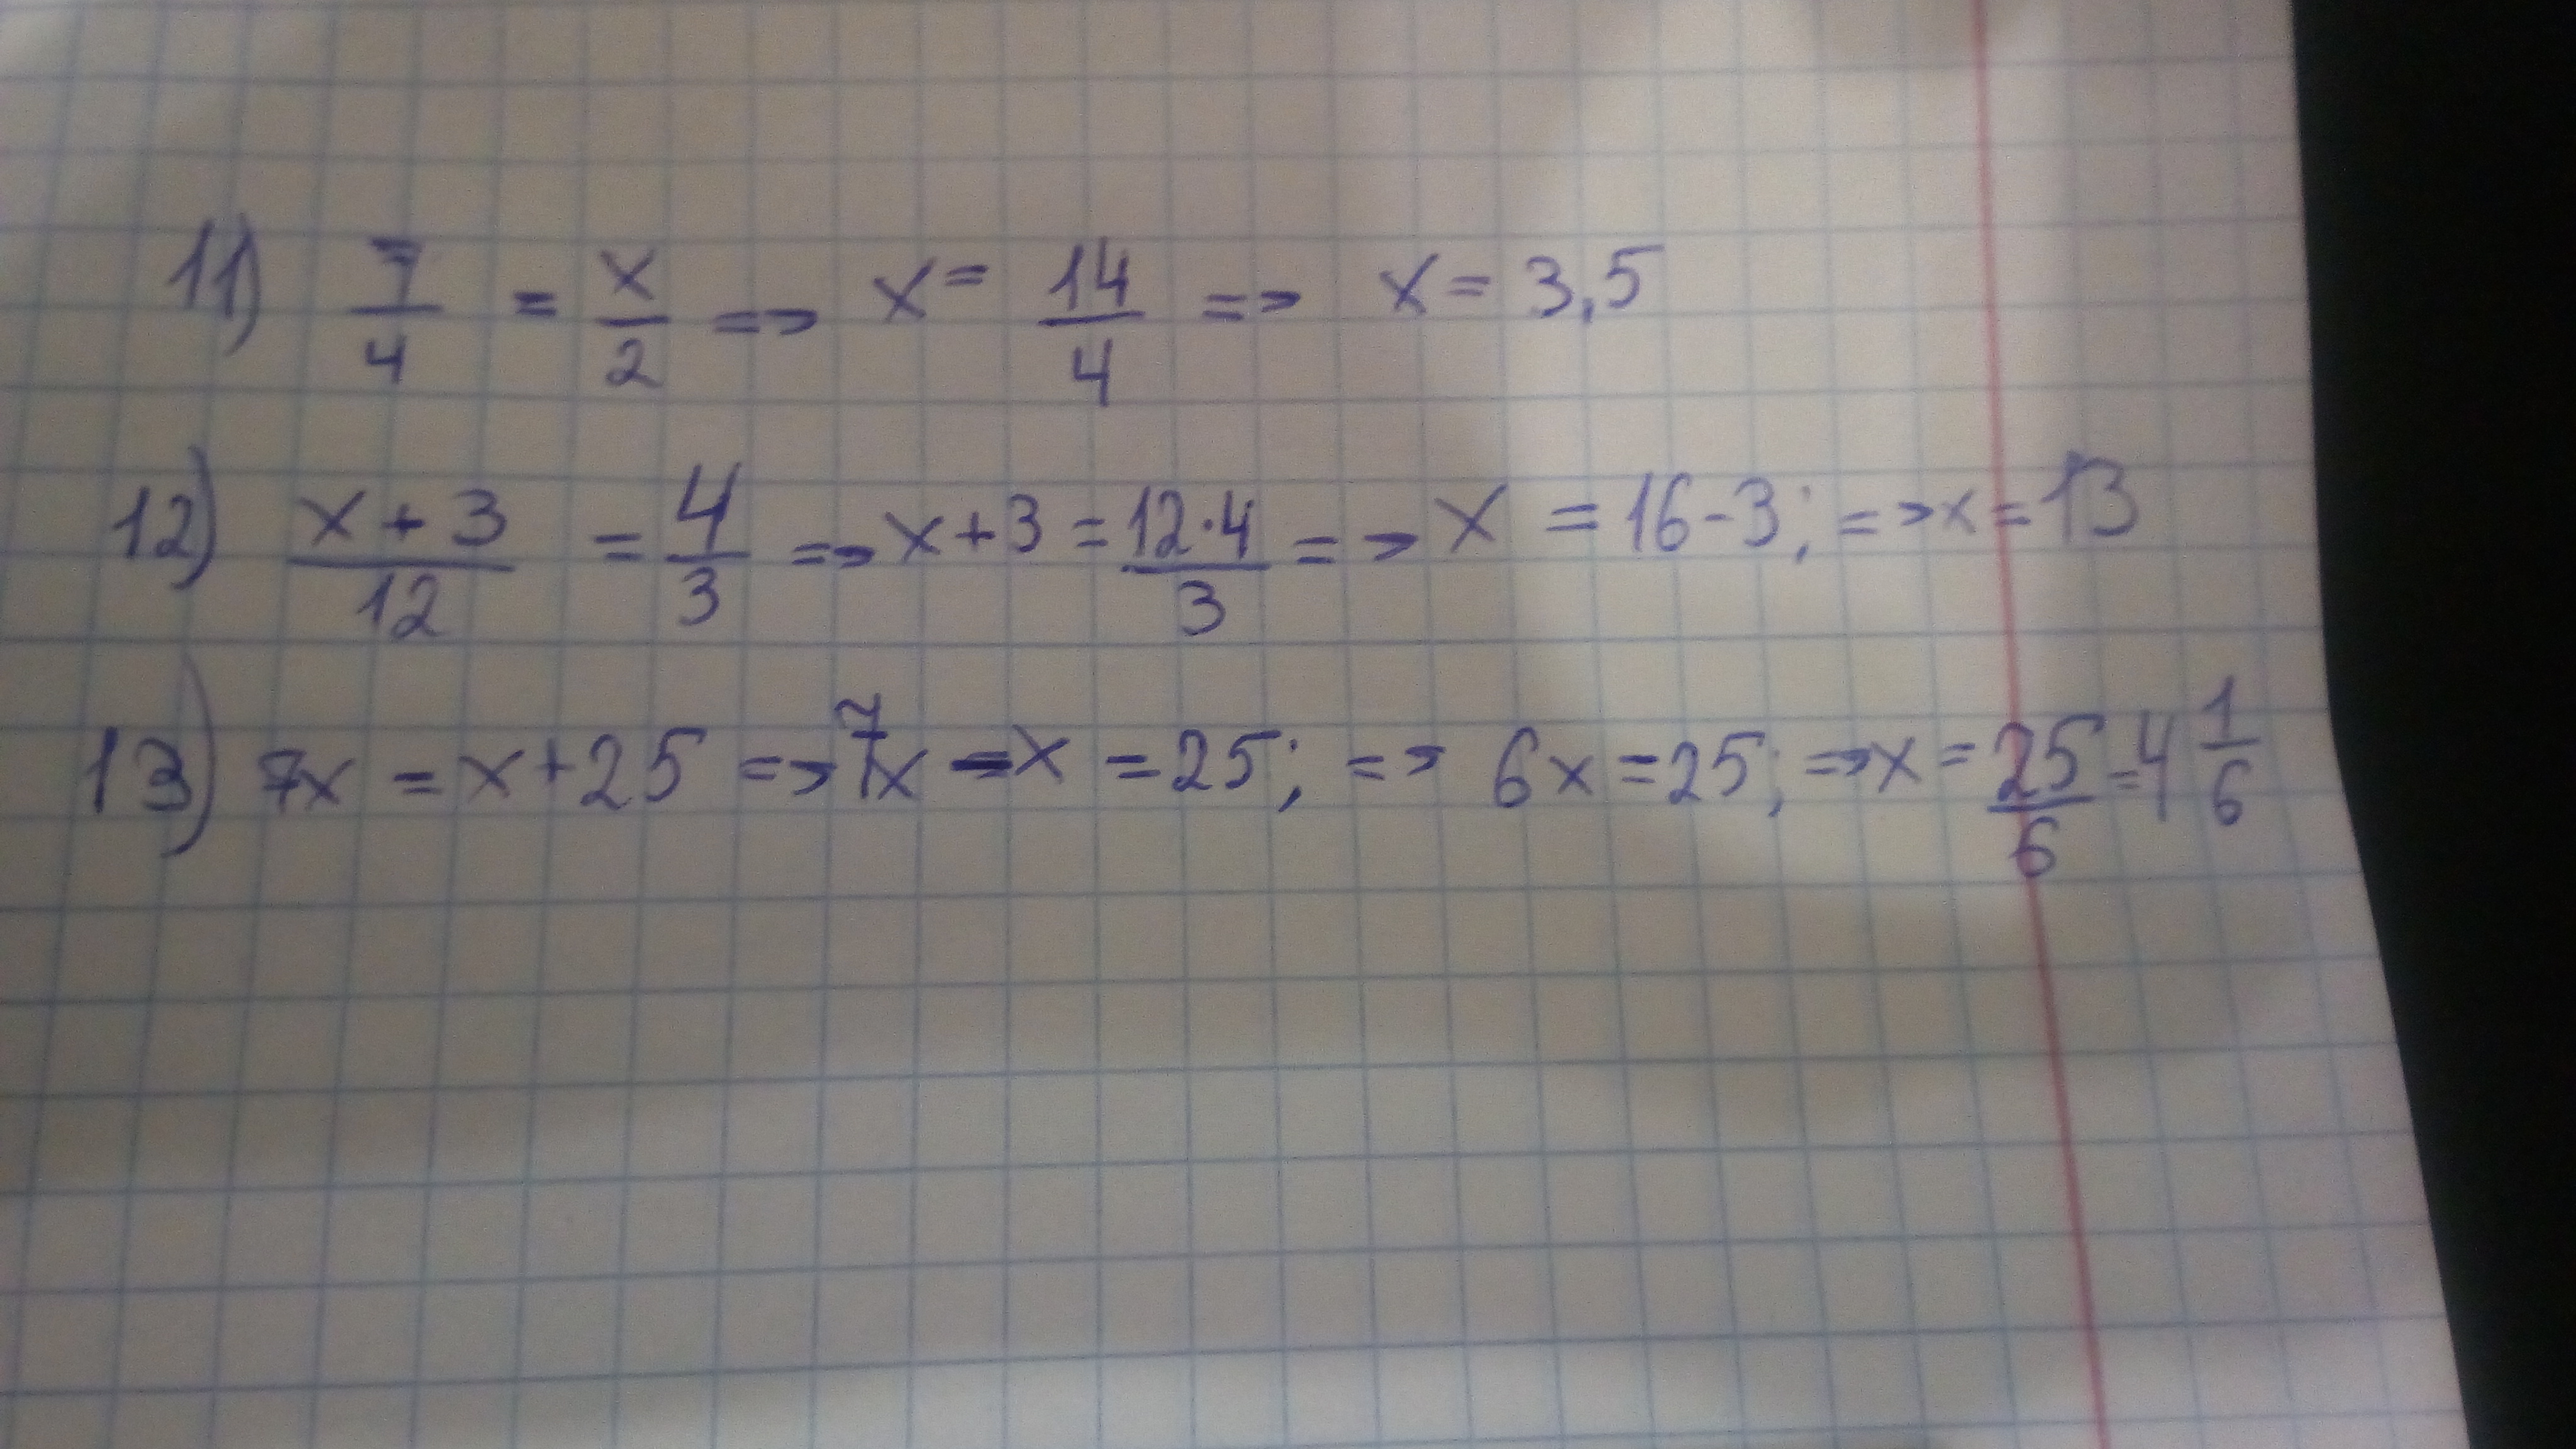 11) 7/4 = x/2 => x = 14/4 => x = 3,5
12) (x + 3)/12 = 4/3 => x + 3 = (12·4)/3 => x = 16-3; => x = 13
13) 7x = x+25 => 7x - x = 25; => 6x = 25; => x = 25/6 = 4 1/6